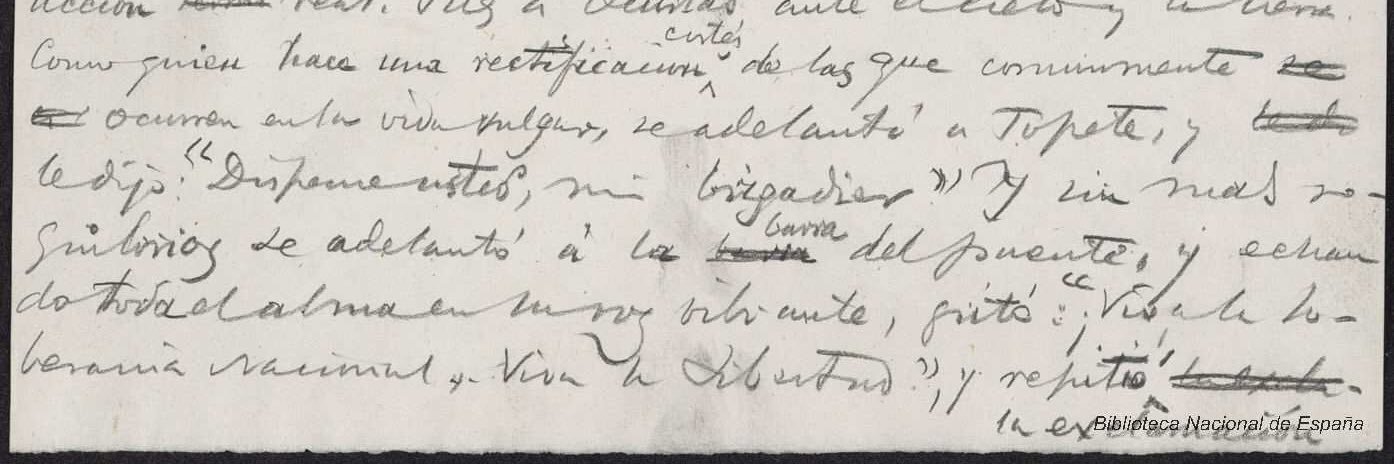 acción real. ante el cielo y la tierra.
Como quien hace una rectificación cortés de las que comunmente se
ocurren en la vida vulgar, se adelantó a Topete, y
le dijo: "Dispense usted, mi brigadier" Y sin mas re-
quilorios se adelantó á la barra del puente, y echan
do toda el alma en su voz vibrante, gritó: "¡Viva la So-
berania Nacional, Viva la Libertad", y repitió
la exclamación
Biblioteca Nacional de España